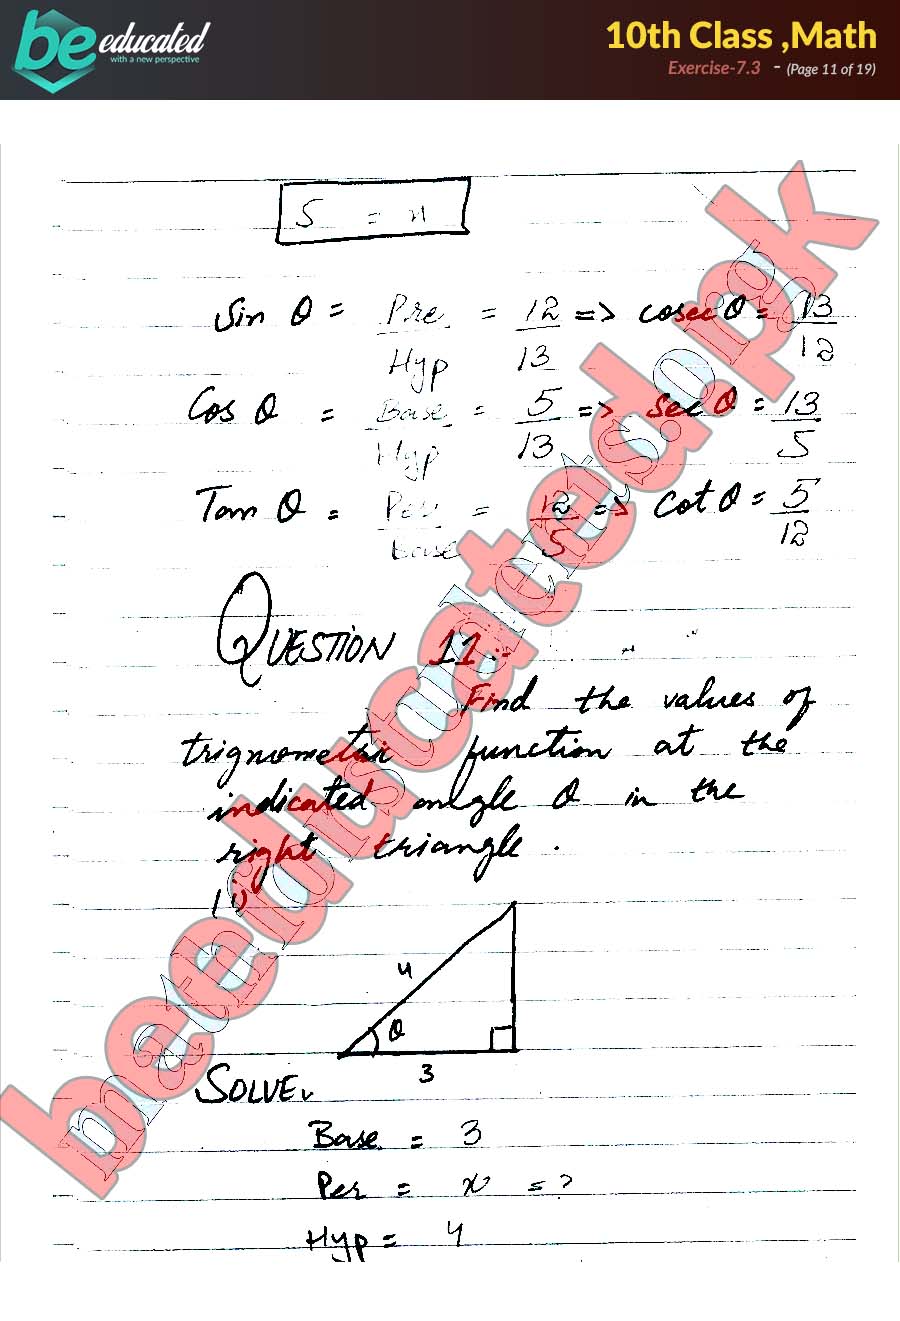 be educated
with a new perspective
10th Class ,Math
Exercise-7.3 - (Page 11 of 19)
5 = x
Sin θ = Pre/Hyp = 12/13 => cosec θ = 13/12
Cos θ = Base/Hyp = 5/13 => sec θ = 13/5
Tan θ = Per/Base = 12/5 => cot θ = 5/12
QUESTION 11:-
Find the values of
trignometric function at the
indicated angle θ in the
right triangle .
4
θ
3
SOLVE
Base = 3
Per = x = ?
Hyp = 4
beeducated.pk